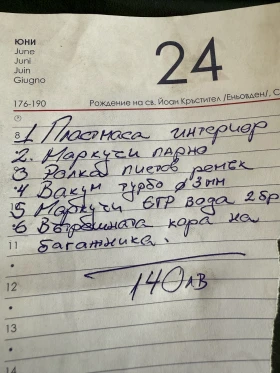 ЮНИ
June
Juni
Juin
Giugno
24
176-190
Рождение на св. Йоан Кръстител /Еньовден/, С
8 1. Пластмаса интериор
9 2. Маркучи парно
3 Ролка пистов ремък
4 Вакум турбо ф 3мм
5 Маркучи БГР вода 2бр
6 Вътрешната кора на
11 багажника.
12 140лв
13
14